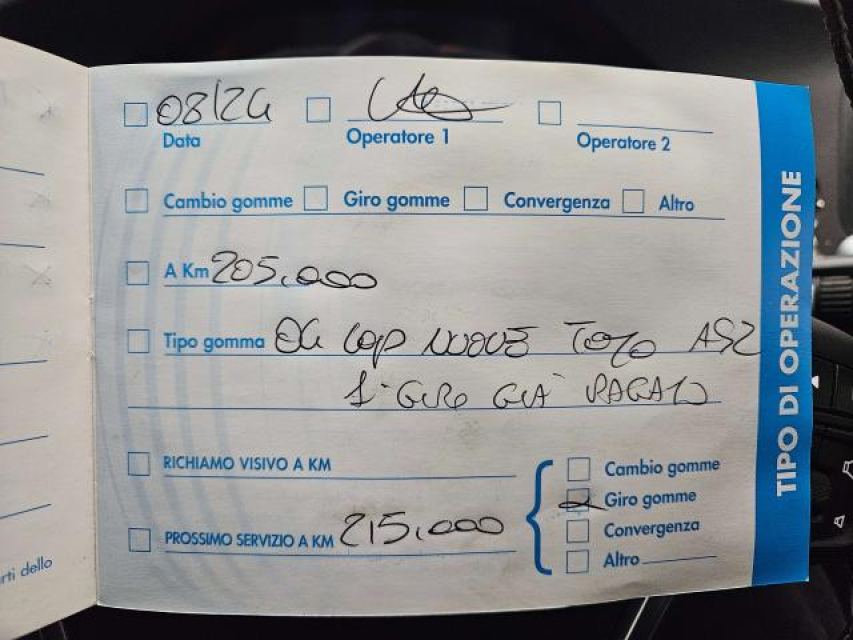 08/24
Data Operatore 1 Operatore 2
Cambio gomme Giro gomme Convergenza Altro
A Km 205.000
Tipo gomma 04 COP NUOVE TOYO AS2
1° GIRO GIÀ PAGATO
RICHIAMO VISIVO A KM
PROSSIMO SERVIZIO A KM 215.000
Cambio gomme
Giro gomme
Convergenza
Altro
TIPO DI OPERAZIONE
rti dello